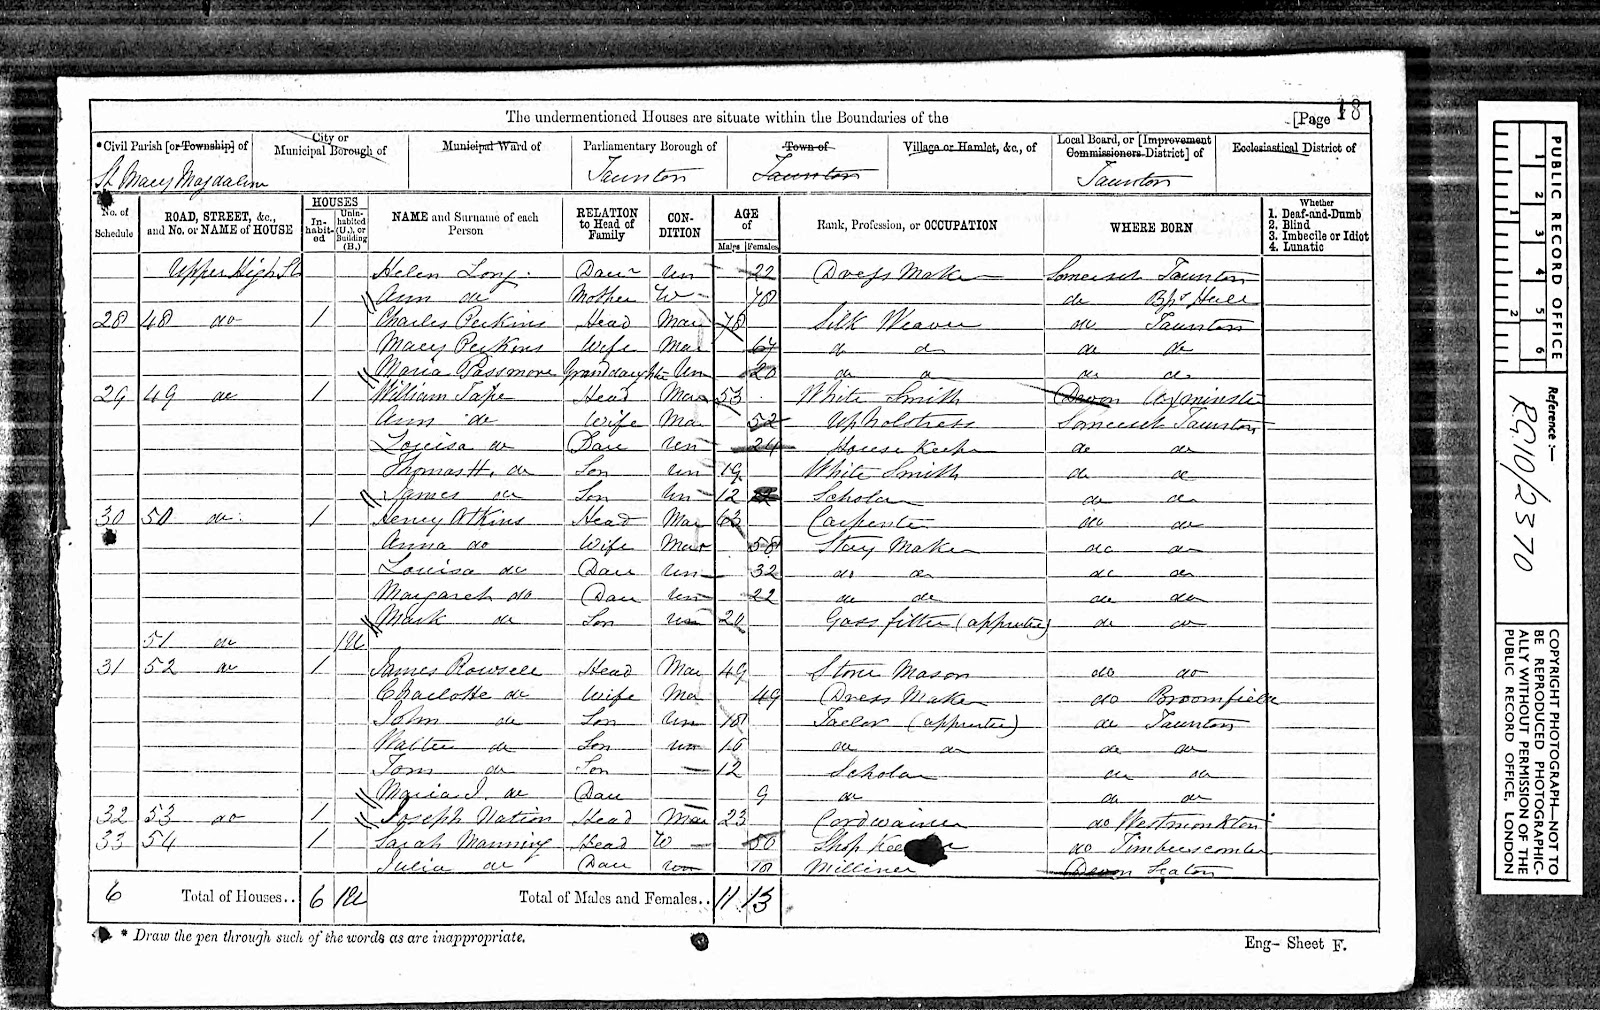 The undermentioned Houses are situate within the Boundaries of the [Page 18
*Civil Parish [or Township] of City or Municipal Borough of Municipal Ward of Parliamentary Borough of Town of Village or Hamlet, &c., of Local Board, or [Improvement Commissioners District] of Ecclesiastical District of
St Mary Magdalene Taunton Taunton Taunton
No. of Schedule ROAD, STREET, &c., and No. or NAME of HOUSE HOUSES Inhabited Uninhabited (U.), or Building (B.) NAME and Surname of each Person RELATION to Head of Family CONDITION AGE of Males Females Rank, Profession, or OCCUPATION WHERE BORN Whether 1. Deaf-and-Dumb 2. Blind 3. Imbecile or Idiot 4. Lunatic
Upper High St Helen Long Daur Un 22 Dress Maker Somerset Taunton
Ann do Mother W 78 do Bps Hull
28 48 do 1 Charles Perkins Head Mar 78 Silk Weaver do Taunton
Mary Perkins Wife Mar 67 do do do do
Maria Passmore Granddaughter Un 20 do do do do
29 49 do 1 William Tape Head Mar 53 White Smith Devon Axminster
Ann do Wife Mar 52 Upholstress Somerset Taunton
Louisa do Dau Un 24 House Keeper do do
Thomas H. do Son Un 19 White Smith do do
James do Son Un 12 Scholar do do
30 50 do 1 Henry Atkins Head Mar 63 Carpenter do do
Anna do Wife Mar 58 Stay Maker do do
Louisa do Dau Un 32 do do do do
Margaret do Dau Un 22 do do do do
Mark do Son Un 20 Gass fitter (apprentice) do do
51 do 1U
31 52 do 1 James Rowsell Head Mar 49 Stone Mason do do
Charlotte do Wife Mar 49 Dress Maker do Broomfield
John do Son Un 18 Tailor (apprentice) do Taunton
Walter do Son Un 16 do do do do
Tom do Son 12 Scholar do do
Maria J. do Dau 9 do do do
32 53 do 1 Joseph Nation Head Mar 23 Cordwainer do Westmonkton
33 54 1 Sarah Manning Head W 50 Shop Keeper do Timberscombe
Julia do Dau Un 18 Milliner Devon Seaton
6 Total of Houses.. 6 1U Total of Males and Females.. 11 13
* Draw the pen through such of the words as are inappropriate. Eng- Sheet F.
PUBLIC RECORD OFFICE
1 2 3 4 5 6
1 2
Reference :-
R.G. 10/2370
COPYRIGHT PHOTOGRAPH—NOT TO
BE REPRODUCED PHOTOGRAPHIC-
ALLY WITHOUT PERMISSION OF THE
PUBLIC RECORD OFFICE, LONDON